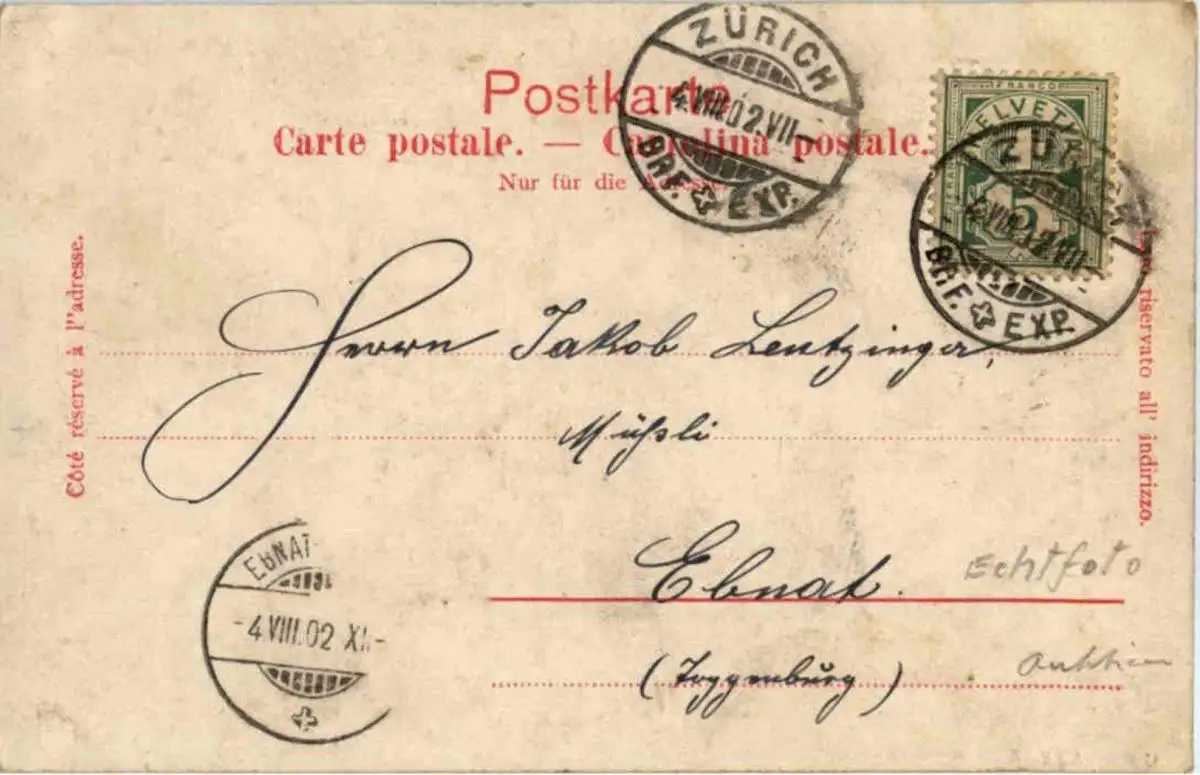 ZÜRICH
4.VIII.02.VII-
BRF. EXP.
FRANCO
HELVETIA
5
ZÜRICH
4.VIII.02.VII-
BRF. EXP.
Postkarte
Carte postale. — Cartolina postale.
Nur für die Adresse.
Côté réservé à l'adresse.
Lato riservato all' indirizzo.
Herrn Jakob Lentzinger,
Müssli
Ebnat.
(Toggenburg)
Echtfoto
EBNAT-
-4.VIII.02 XI-